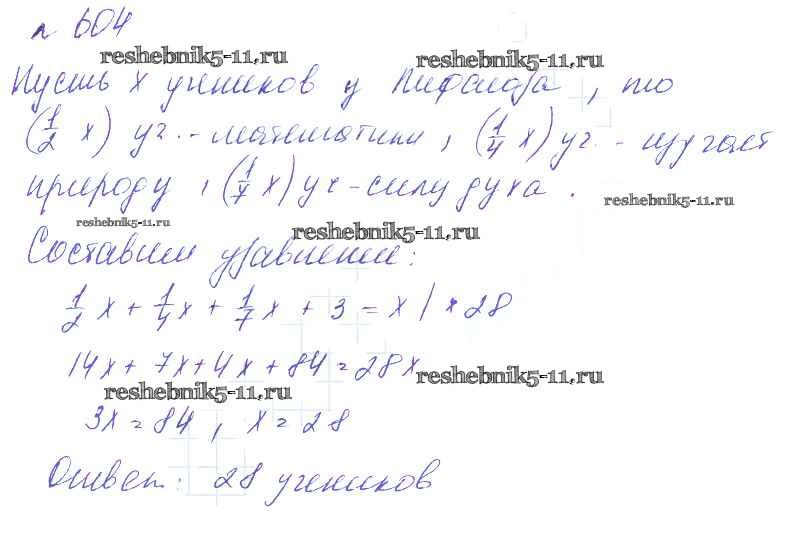 № 604
reshebnik5-11.ru reshebnik5-11.ru
Пусть x учеников у Пифагора, то
(1/2 x) уч. - математики, (1/4 x) уч. - изучает
природу, (1/7 x) уч - силу духа.
reshebnik5-11.ru reshebnik5-11.ru reshebnik5-11.ru
Составим уравнение:
1/2 x + 1/4 x + 1/7 x + 3 = x | * 28
14x + 7x + 4x + 84 = 28x
reshebnik5-11.ru reshebnik5-11.ru
3x = 84, x = 28
Ответ: 28 учеников